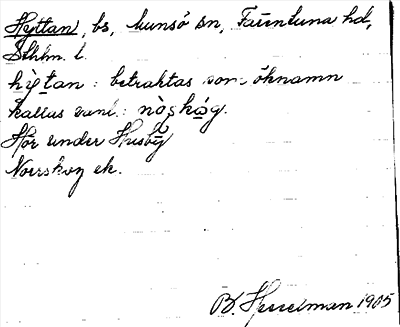 Hyttan, bs, Munsö sn, Färentuna hd,
Sthlm. l.
hỳtan : betraktas som öknamn
kallas vanl. : nòʂkóg.
Hör under Husby
Norrskog ek.
B. Hesselman 1905